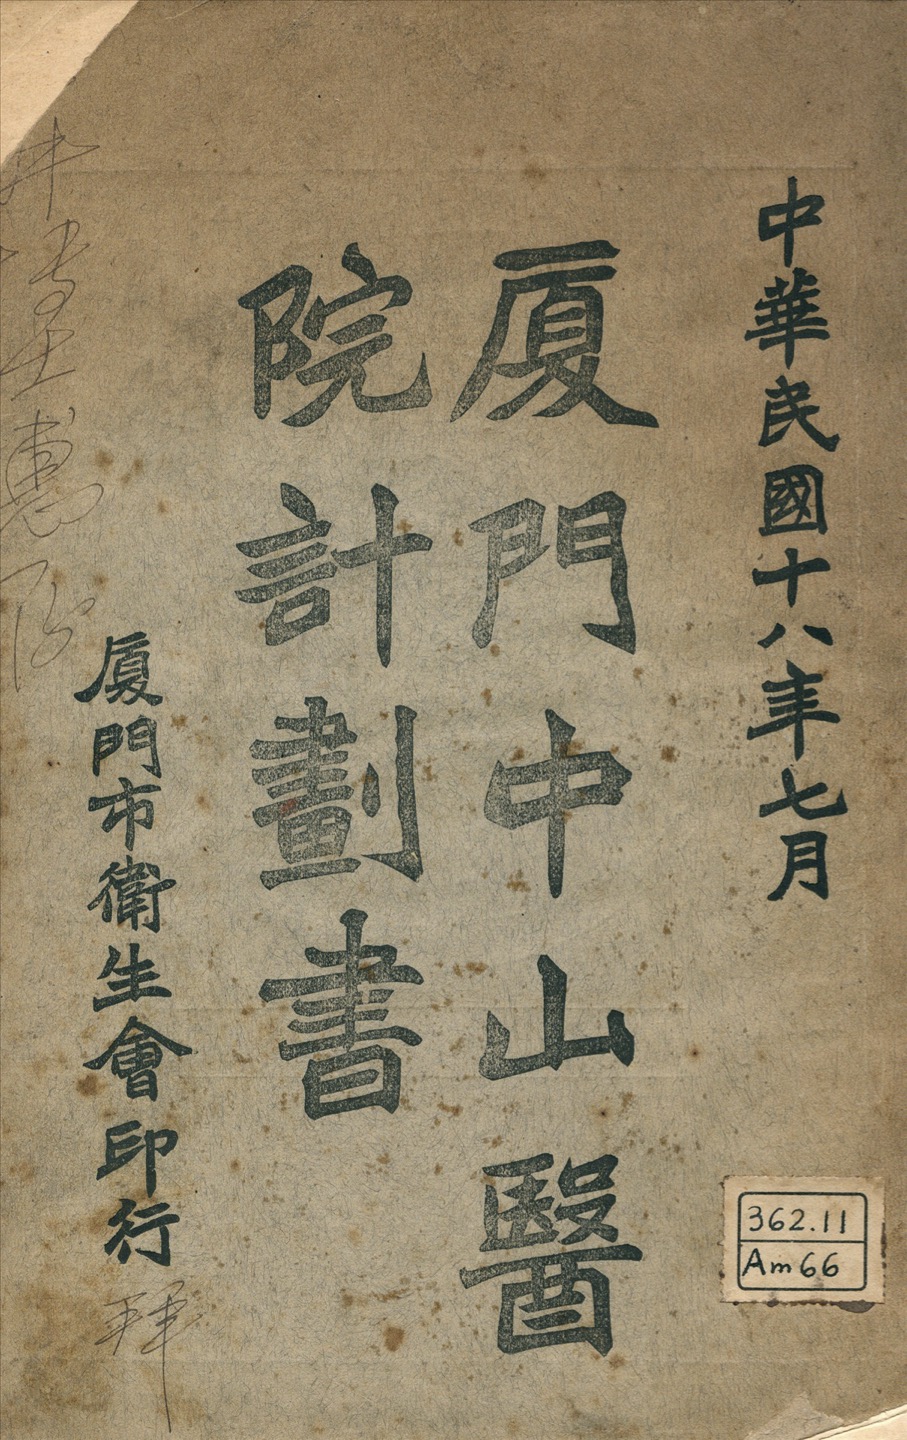 中華民國十八年七月
厦門中山醫
院計劃書
厦門市衛生會印行
拜
362.11
Am66